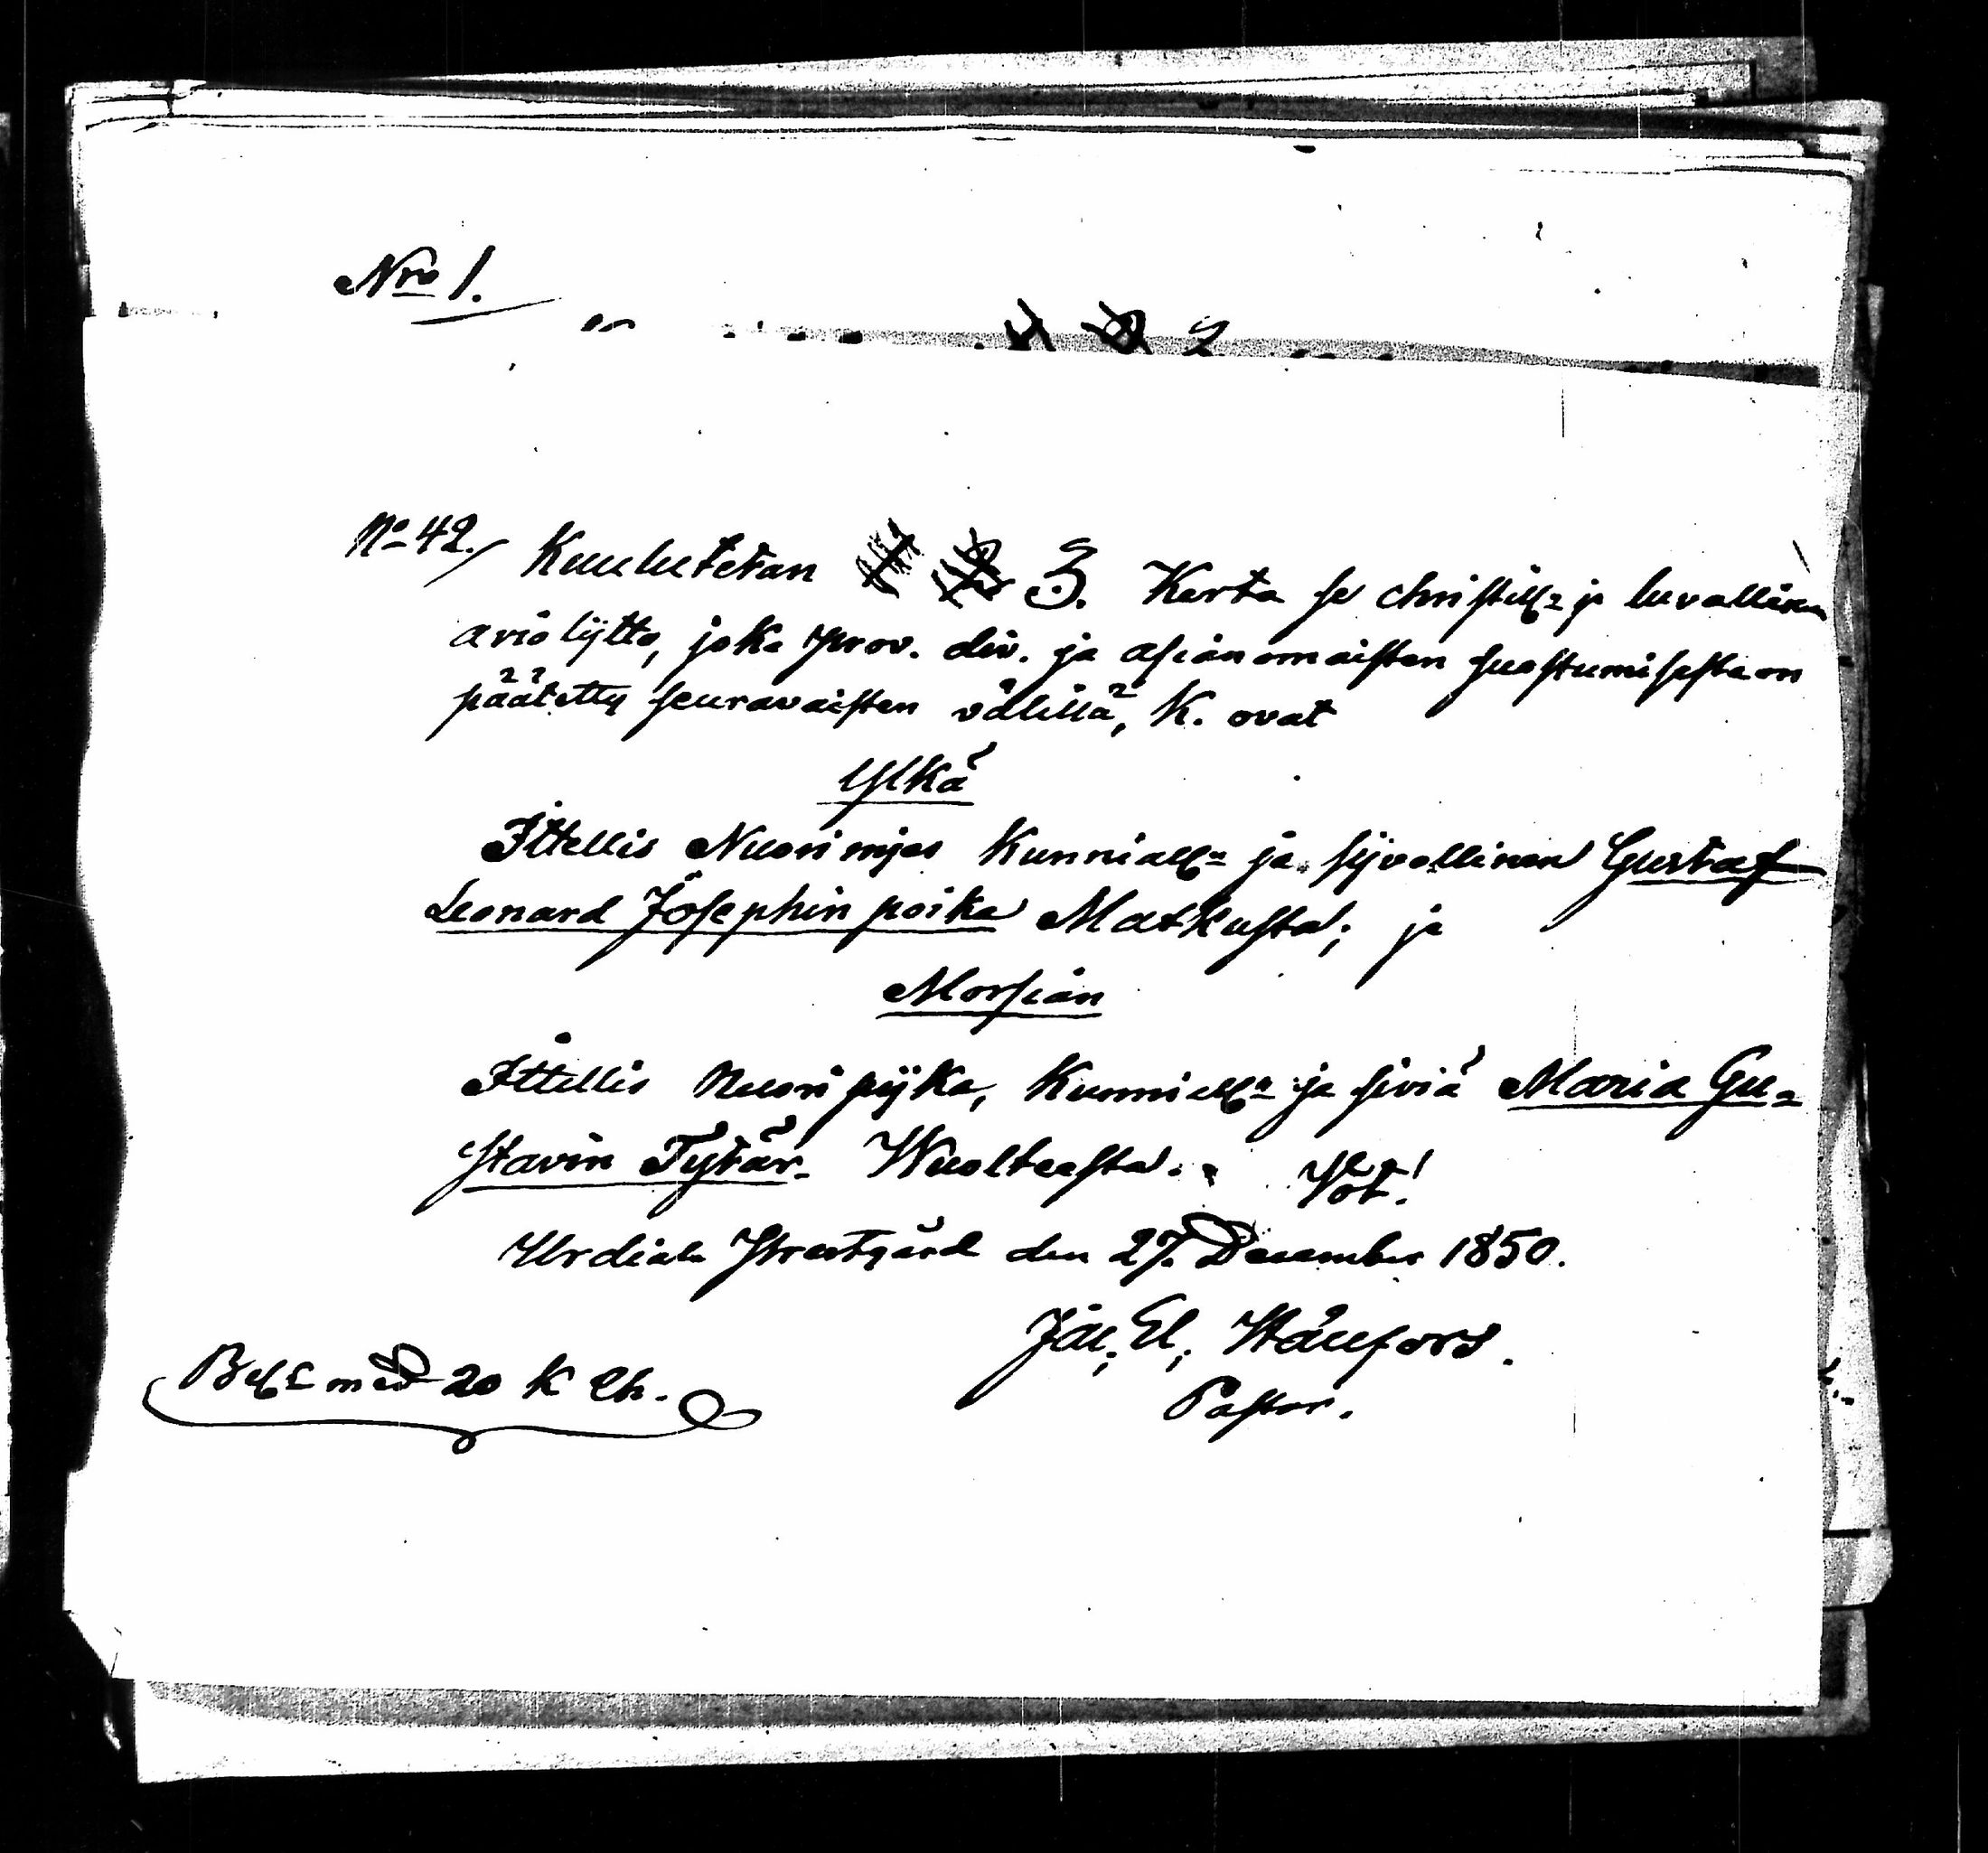 Nro 1.
No 42./ Kuulutetan 3. Kerta se christill: ja luvallinen
aviolijtto, joka prov. div. ja asianomaisten suostumisesta on
päätetty seuravaisten välillä, K. ovat
Ylkä
Ittellis Nuorimjes Kunniall: ja sijvollinen Gustaf
Leonard Josephin poika Matkusta; ja
Morsian
Ittellis Nuori pijka, Kunniall: ja siviä Maria Gu=
stavin Tytär. Wuolteesta. Vot!
Urdiala Prestgård den 27. December 1850.
Pastor.
med 20 K